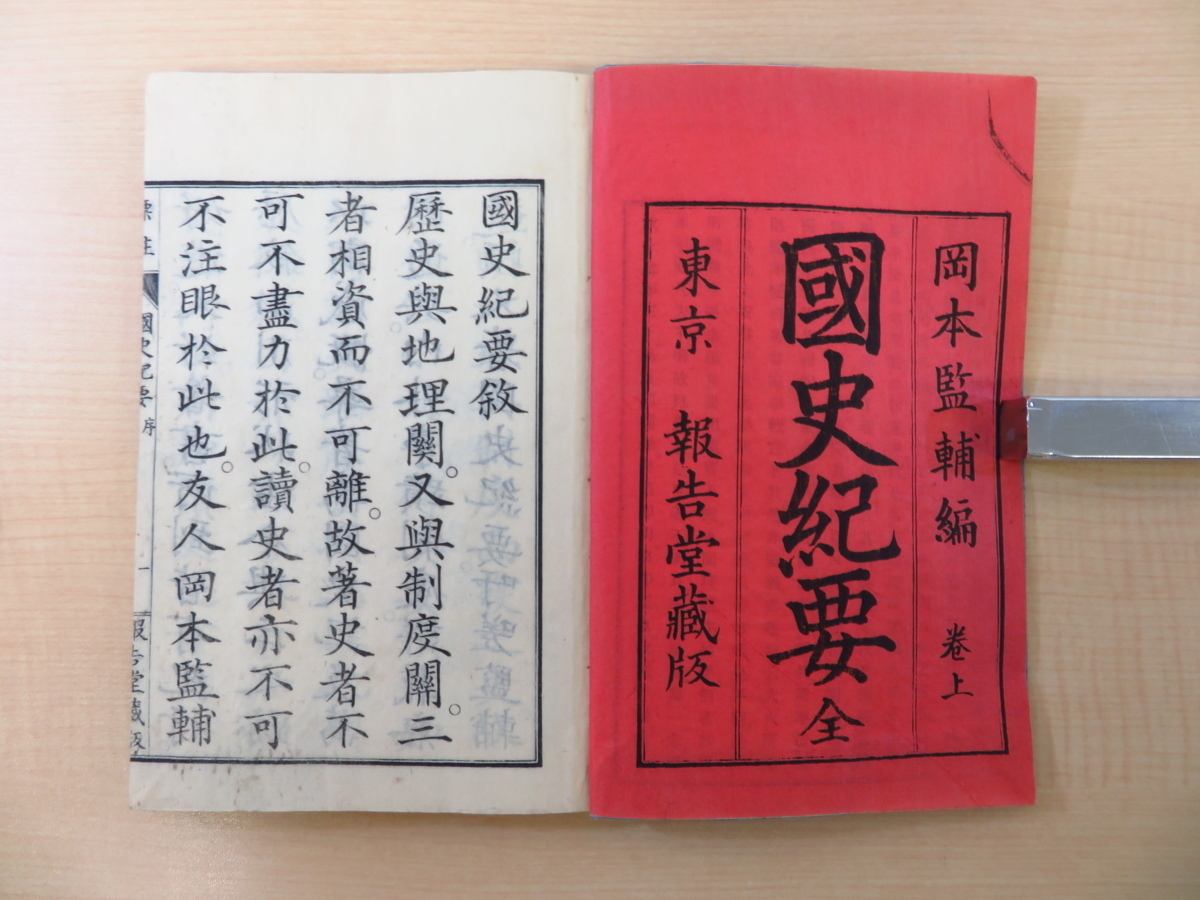 岡本監輔編 卷上
國史紀要 全
東京 報告堂藏版
國史紀要敘
歷史與地理關。又與制度關。三
者相資而不可離。故著史者不
可不盡力於此。讀史者亦不可
不注眼於此也。友人岡本監輔
標註 國史紀要 序 一 報告堂藏版